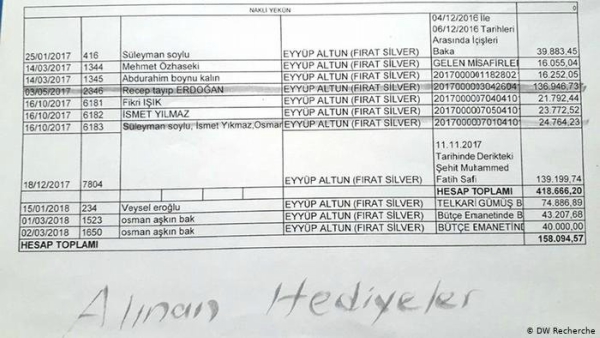 NAKLİ YEKÜN 0
25/01/2017 416 Süleyman soylu EYYÜP ALTUN (FIRAT SİLVER) 04/12/2016 İle 06/12/2016 Tarihleri Arasında İçişleri Baka 39.883,45
14/03/2017 1344 Mehmet Özhaseki EYYÜP ALTUN (FIRAT SİLVER) GELEN MİSAFİRLE 16.055,04
14/03/2017 1345 Abdurahim boynu kalın EYYÜP ALTUN (FIRAT SİLVER) 2017000001182802 16.252,05
03/05/2017 2346 Recep tayıp ERDOĞAN EYYÜP ALTUN (FIRAT SİLVER) 2017000003042604 136.946,73
16/10/2017 6181 Fikri IŞIK EYYÜP ALTUN (FIRAT SİLVER) 2017000007040410 21.792,44
16/10/2017 6182 İSMET YILMAZ EYYÜP ALTUN (FIRAT SİLVER) 2017000007050410 23.772,52
16/10/2017 6183 Süleyman soylu, İsmet Yıkmaz,Osman EYYÜP ALTUN (FIRAT SİLVER) 2017000007010410 24.764,23
18/12/2017 7804 EYYÜP ALTUN (FIRAT SİLVER) 11.11.2017 Tarihinde Derikteki Şehit Mutammed Fatih Safi 139.199,74
HESAP TOPLAMI 418.666,20
15/01/2018 234 Veysel eroğlu EYYÜP ALTUN (FIRAT SİLVER) TELKARİ GÜMÜŞ B 74.886,89
01/03/2018 1523 osman aşkın bak EYYÜP ALTUN (FIRAT SİLVER) Bütçe Emanetinde B 43.207,68
02/03/2018 1650 osman aşkın bak EYYÜP ALTUN (FIRAT SİLVER) BÜTÇE EMANETİND 40.000,00
HESAP TOPLAMI 158.094,57
Alınan Hediyeler
© DW Recherche